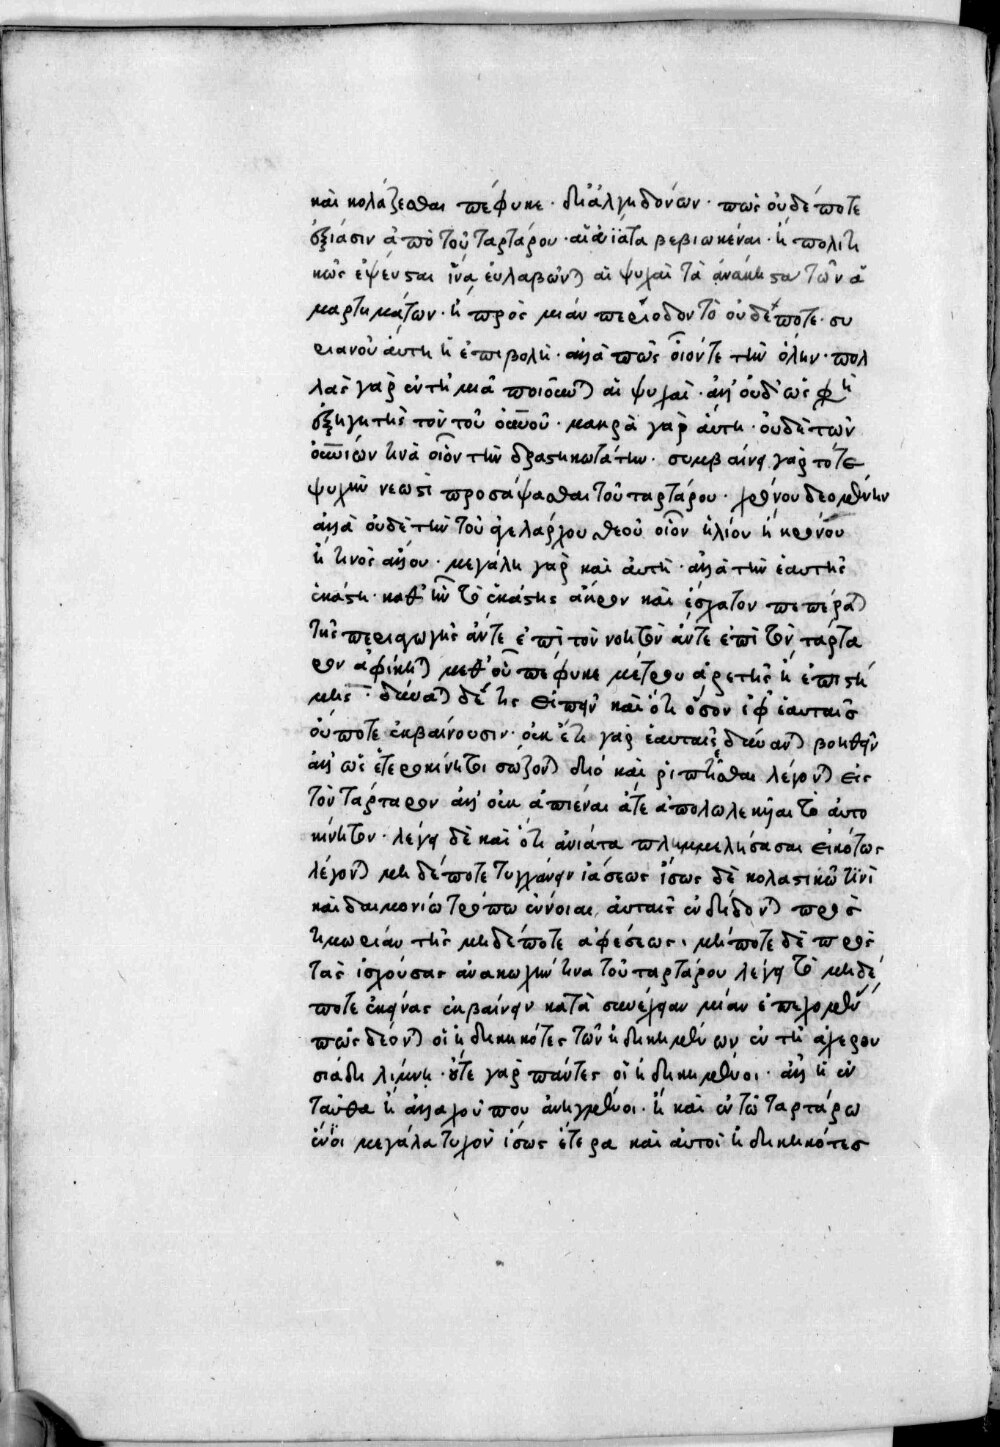 καὶ κολάζεσθαι πέφυκε · δι' ἀλγηδόνων · πῶς οὐδέποτε
ἐξίασιν ἀπὸ τοῦ ταρτάρου · αἱ ἀνίατα βεβιωκέναι · ἢ πολιτι
κῶς ἔψευσται ἵνα εὐλαβῶνται αἱ ψυχαὶ τὰ ἀνάκηστα τῶν ἁ
μαρτημάτων · ἢ πρὸς μίαν περίοδον τὸ οὐδέποτε · συ
ριανοῦ αὕτη ἡ ἐπιβολή · ἀλλὰ πῶς οἷόν τε τὴν ὅλην · πολ
λὰς γὰρ ἐν τῇ μιᾷ ποιοῦνται αἱ ψυχαί · ἀλλ' οὐδ' ὥς φησι
ἐξηγητὴς τὸν τοῦ οὐρανοῦ · μακρὰ γὰρ αὕτη · οὐδὲ τῶν
οὐρανίων τινὰ οἷον τὴν δραστικωτάτην · συμβαίνει γὰρ τότε
ψυχὴν νεωστὶ προσάψασθαι τοῦ ταρτάρου · χρόνου δεομένην
ἀλλὰ οὐδὲ τὴν τοῦ ἀγελάρχου θεοῦ οἷον ἡλίου ἢ κρόνου
ἤ τινος ἄλλου · μεγάλη γὰρ καὶ αὐτή · ἀλλὰ τὴν ἑαυτῆς
ἑκάστη · καθ' ἣν τὸ ἑκάστης ἄκρον καὶ ἔσχατον πεπέραται
τῆς περιαγωγῆς ἄν τε ἐπὶ τὸν νοητὸν ἄν τε ἐπὶ τὸν τάρτα
ρον ἀφίκηται μεθ' οὗ πέφυκε μέτρου ἀρετῆς ἢ ἐπιστή
μης · δύναται δέ τις εἰπεῖν καὶ ὅτι ὅσον ἐφ' ἑαυταῖς
οὔποτε ἐκβαίνουσιν · οὐκ ἔτι γὰρ ἑαυταῖς δύνανται βοηθεῖν
ἀλλ' ὡς ἑτεροκίνητοι σώζονται διὸ καὶ ῥιπτεῖσθαι λέγονται εἰς
τὸν τάρταρον ἀλλ' οὐκ ἀπιέναι ἅτε ἀπολωλεκυῖαι τὸ αὐτο
κίνητον · λέγει δὲ καὶ ὅτι ἀνίατα πλημμελήσασαι εἰκότως
λέγονται μηδέποτε τυγχάνειν ἰάσεως ἴσως δὲ κολαστικῷ τινὶ
καὶ δαιμονίῳ τρόπῳ ἔννοιαι αὐταῖς ἐνδίδονται πρὸς
τιμωρίαν τῆς μηδέποτε ἀφέσεως · μήποτε δὲ πρὸς
τὰς ἰσχούσας ἀνακωχήν τινα τοῦ ταρτάρου λέγει τὸ μηδέ
ποτε ἐκείνας ἐκβαίνειν κατὰ συνέχειαν μίαν ἐπεχομέν
πῶς δέονται οἱ ἠδικηκότες τῶν ἠδικημένων ἐν τῇ ἀχερου
σιάδι λίμνῃ · οὔτε γὰρ πάντες οἱ ἠδικημένοι · ἀλλ' ἢ ἐν
ταῦθα ἢ ἀλλαχοῦ που ἀνηγμένοι · ἢ καὶ ἐν τῷ ταρτάρῳ
ἔνιοι μεγάλα τυχὸν ἴσως ἕτερα καὶ αὐτοὶ ἠδικηκότες